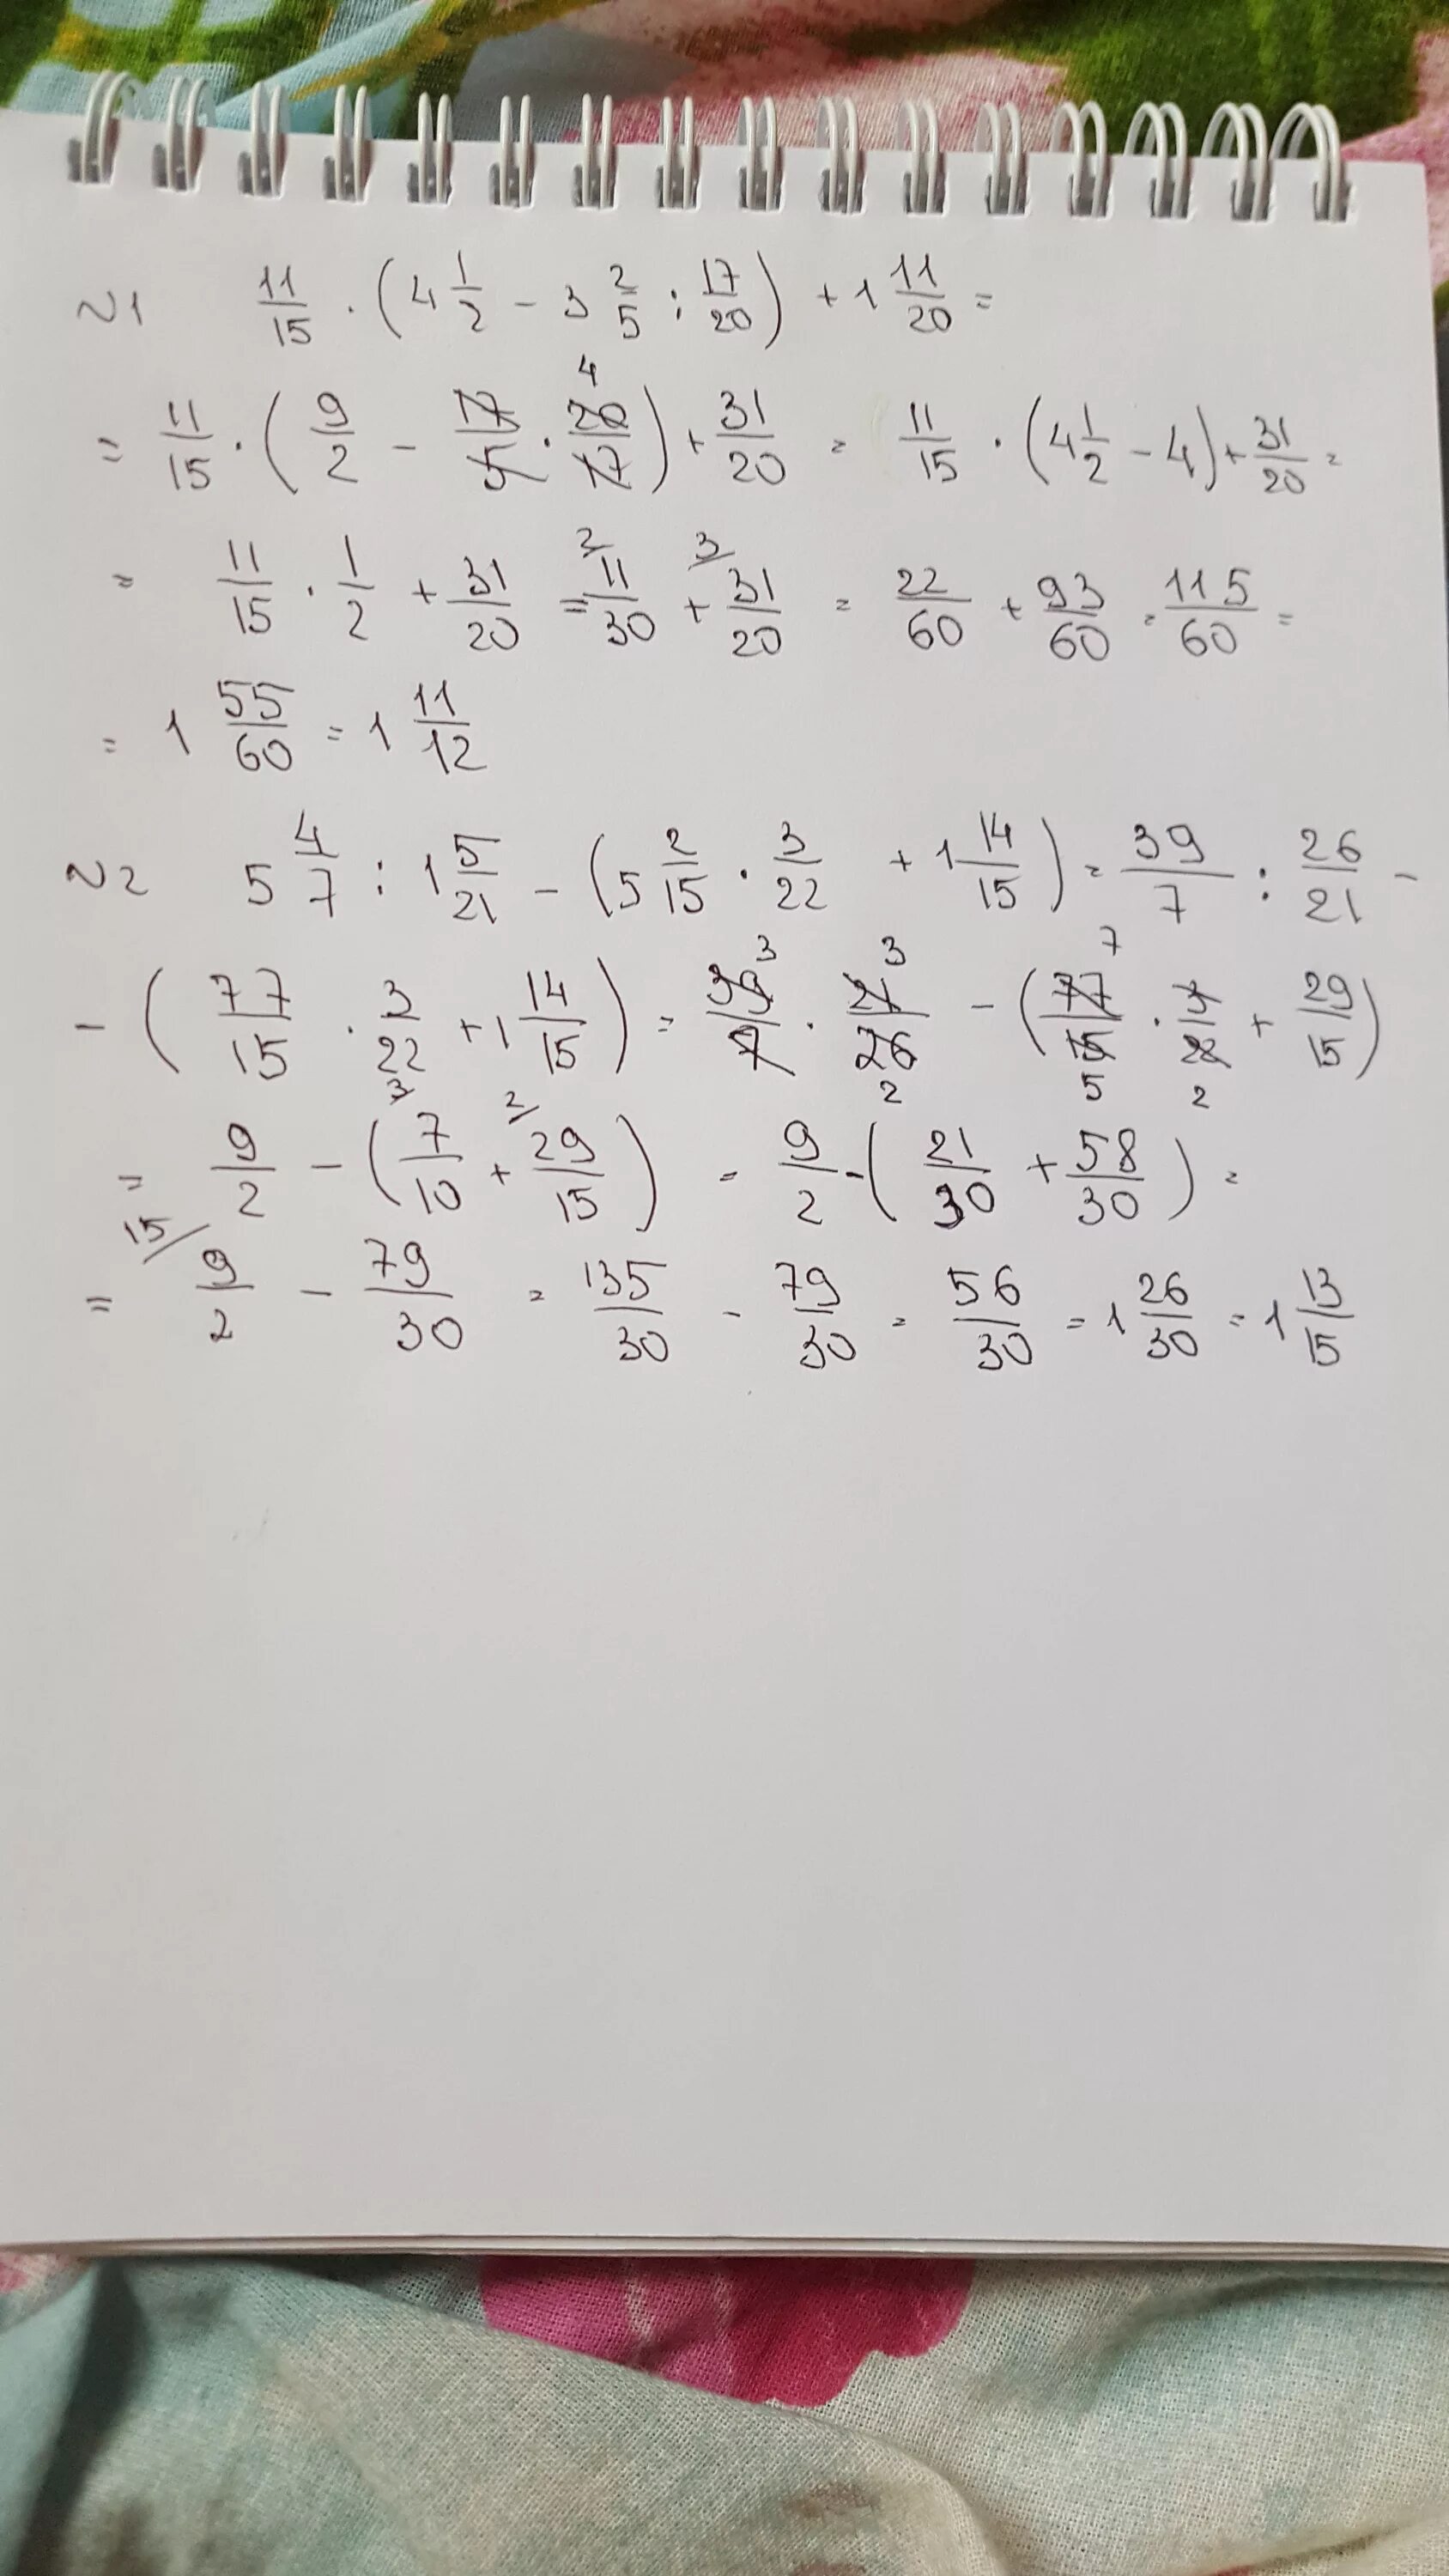 N1 11/15 · (4 1/2 - 3 2/5 : 17/20) + 1 11/20 =
= 11/15 · (9/2 - 17/5 · 20/17 4) + 31/20 = 11/15 · (4 1/2 - 4) + 31/20 =
= 11/15 · 1/2 + 31/20 = 2/ 11/30 + 3/ 31/20 = 22/60 + 93/60 = 115/60 =
= 1 55/60 = 1 11/12
N2 5 4/7 : 1 5/21 - (5 2/15 · 3/22 + 1 14/15) = 39/7 : 26/21 -
- (77/15 · 3/22 + 1 14/15) = 39/7 3 · 21/26 3 2 - (77/15 7 5 · 3/22 2 + 29/15)
= 9/2 - (3/ 7/10 + 2/ 29/15) = 9/2 - (21/30 + 58/30) =
= 15/ 9/2 - 79/30 = 135/30 - 79/30 = 56/30 = 1 26/30 = 1 13/15